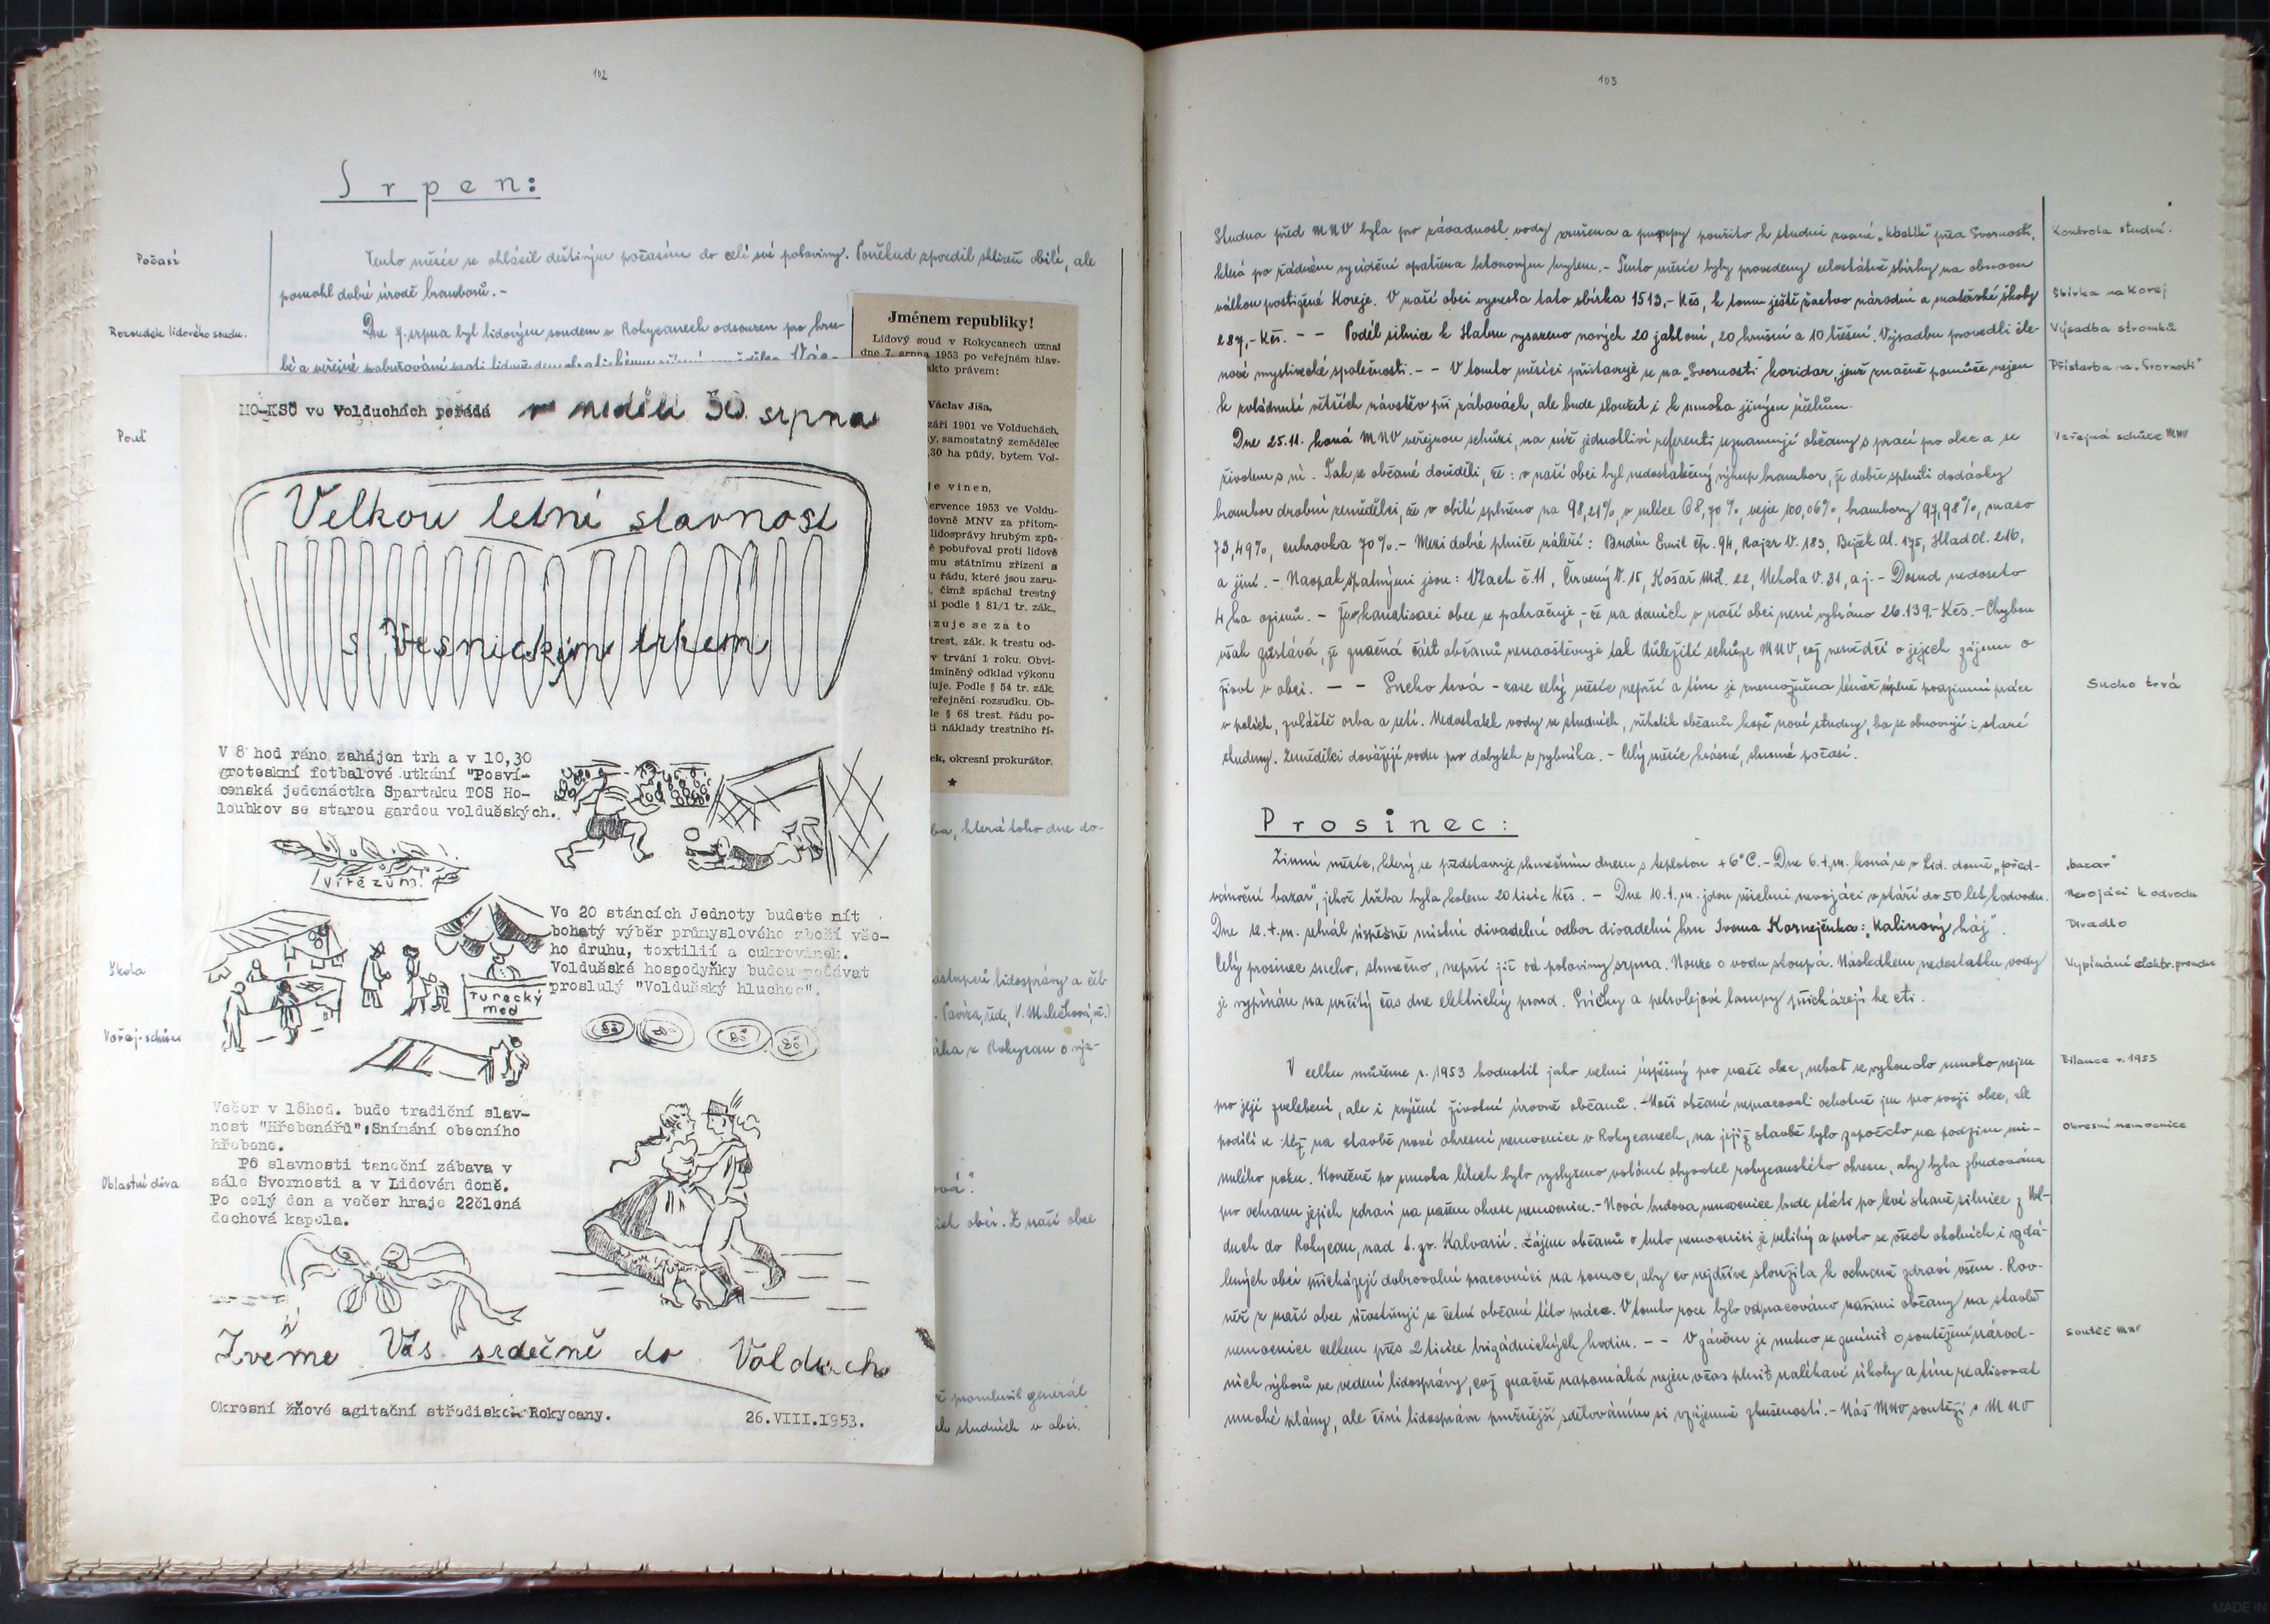 102
Srpen:
Počasí
Tento měsíc se ohlásil deštivým počasím do celé své poloviny. Poněkud zpozdil sklizeň obilí, ale
pomohl dobré úrodě bramborů. -
Rozsudek lidového soudu.
Dne 7. srpna byl lidovým soudem v Rokycanech odsouzen pro hru-
bé a veřejné pobuřování proti lidově demokratickému
Pouť
Škola
Veřej. schůze
Oblastní
Jménem republiky!
Lidový soud v Rokycanech uznal
dne 7. srpna 1953 po veřejném hlav-
akto právem:
Václav Jíša,
září 1901 ve Volduchách,
y, samostatný zemědělec
,30 ha půdy, bytem Vol-
je vinen,
ervence 1953 ve Voldu-
dovně MNV za přítom-
lidosprávy hrubým způ-
ě pobuřoval proti lidově
mu státnímu zřízení a
u řádu, které jsou zaru-
, čímž spáchal trestný
ní podle § 81/1 tr. zák.,
zuje se za to
trest. zák. k trestu od-
v trvání 1 roku. Obvi-
dmíněný odklad výkonu
luje. Podle § 54 tr. zák.
veřejnění rozsudku. Ob-
le § 68 trest. řádu po-
ti náklady trestního ří-
ek, okresní prokurátor.
MO-KSČ ve Volduchách pořádá v neděli 30. srpna
Velkou letní slavnost
s Vesnickým trhem
V 8 hod ráno zahájen trh a v 10,30
groteskní fotbalové utkání "Posví-
censká jedenáctka Spartaku TOS Ho-
loubkov se starou gardou voldušských.
Vítězům!
Ve 20 stáncích Jednoty budete mít
bohatý výběr průmyslového zboží vše-
ho druhu, textilií a cukrovinek.
Voldušské hospodyňky budou podávat
proslulý "Voldušský hluchec".
Turecký
med
Večer v 18hod. bude tradiční slav-
nost "Hřebenářů", Snímání obecního
hřebene.
Po slavnosti taneční zábava v
sále Svornosti a v Lidovém domě.
Po celý den a večer hraje 22členná
dechová kapela.
Zveme Vás srdečně do Volduch
Okresní žňové agitační středisko Rokycany. 26.VIII.1953.
ba, která toho dne do-
zástupců lidosprávy a
áka z Rokycan o
ová".
ích obcí. Z naší obce
promluvil generál
ch studních v obci.
103
Studna před MNV byla pro závadnost vody zrušena a pumpy použito k studni zvané „kbelík" před Svorností,
Kontrola studní.
která po řádném vyčištění opatřena betonovým krytem. - Tento měsíc byly provedeny celostátně sbírky na obnovu
válkou postižené Koreje. V naší obci vynesla tato sbírka 1513,- Kčs, k tomu ještě žactvo národní a mateřské školy
Sbírka na Korej
287,- Kčs. - - Podél silnice k Habru vysazeno nových 20 jabloní, 20 hrušní a 10 třešní. Výsadbu provedli čle-
Výsadba stromků
nové myslivecké společnosti. - - V tomto měsíci přistavuje se na „Svornosti" koridor, jenž značně pomůže nejen
Přístavba na „Svornosti"
k zvládnutí větších návštěv při zábavách, ale bude sloužit i k mnoha jiným účelům.
Dne 25.11. koná MNV veřejnou schůzi, na níž jednotliví referenti seznamují občany s prací pro obec a se
Veřejná schůze MNV
životem s ní. Tak se občané dověděli, že: v naší obci byl nedostatečný výkup brambor, že dobře splnili dodávky
brambor drobní zemědělci, že v obilí splněno na 98,21%, v mléce 68,70%, vejce 100,06%, brambory 97,98%, maso
73,49%, cukrovka 70%. - Mezi dobré plniče náleží: Budín Emil čp. 94, Rajzr V. 183, Bejček Al. 175, Hlad Ol. 216,
a jiní. - Naopak špatnými jsou: Vlach č. 11, Červený V. 15, Košař Mil. 22, Nekola V. 31, a j. - Dosud nedoseto
4 ha ozimů. - kanalisaci obce se pokračuje, - že na daních v naší obci není vybráno 26.139.- Kčs. - Chybou
však zůstává, že značná část občanů nenavštěvuje tak důležité schůze MNV, což nesvědčí o jejich zájmu o
život v obci. - - Sucho trvá - zase celý měsíc neprší a tím je znemožněna téměř úplně podzimní práce
Sucho trvá
v polích, zvláště orba a setí. Nedostatek vody ve studních, několik občanů kope nové studny, ba se obnovují i staré
studny. Zemědělci dovážejí vodu pro dobytek z rybníka. - Celý měsíc krásné, slunné počasí.
Prosinec:
Zimní měsíc, který se představuje slunečním dnem s teplotou + 6°C. - Dne 6. t. m. koná se v Lid. domě „před-
„bazar"
vánoční bazar", jehož tržba byla kolem 20 tisíc Kčs. - Dne 10. t. m. jdou všichni nevojáci v stáří do 50 let k odvodu.
Nevojáci k odvodu
Dne 12. t. m. sehrál úspěšně místní divadelní odbor divadelní hru Ivona Kornejčuka: „Kalinový háj".
Divadlo
Celý prosinec sucho, slunečno, neprší již od poloviny srpna. Nouze o vodu stoupá. Následkem nedostatku vody
Vypínání elektr. proudu
je vypínán na určitý čas dne elektrický proud. Svíčky a petrolejové lampy přicházejí ke cti.
V celku můžeme r. 1953 hodnotit jako velmi úspěšný pro naši obec, neboť se vykonalo mnoho nejen
Bilance r. 1953
pro její zvelebení, ale i zvýšení životní úrovně občanů. - Naši občané nepracovali ochotně jen pro svoji obec, ale
podíli se též na stavbě nové okresní nemocnice v Rokycanech, na jejíž stavbě bylo započato na podzim mi-
Okresní nemocnice
nulého roku. Konečně po mnoha letech bylo vyslyšeno volání obyvatel rokycanského okresu, aby byla zbudována
pro ochranu jejich zdraví na našem okrese nemocnice. - Nová budova nemocnice bude státi po levé straně silnice z Vol-
duch do Rokycan, nad t. zv. Kalvarií. Zájem občanů o tuto nemocnici je veliký a proto se všech okolních i vzdá-
lených obcí přicházejí dobrovolní pracovníci na pomoc, aby co nejdříve sloužila k ochraně zdraví všem. Rov-
něž z naší obce účastňují se četní občané této práce. V tomto roce bylo odpracováno našimi občany na stavbě
nemocnice celkem přes 2 tisíce brigádnických hodin. - - V závěru je nutno se zmínit o soutěžení národ-
Soutěž MNV
ních výborů ve vedení lidosprávy, což značně napomáhá nejen včas plnit naléhavé úkoly a tím realisovat
mnohé plány, ale činí lidosprávu pružnější sdělováním si vzájemně zkušeností. - Náš MNV soutěží s MNV